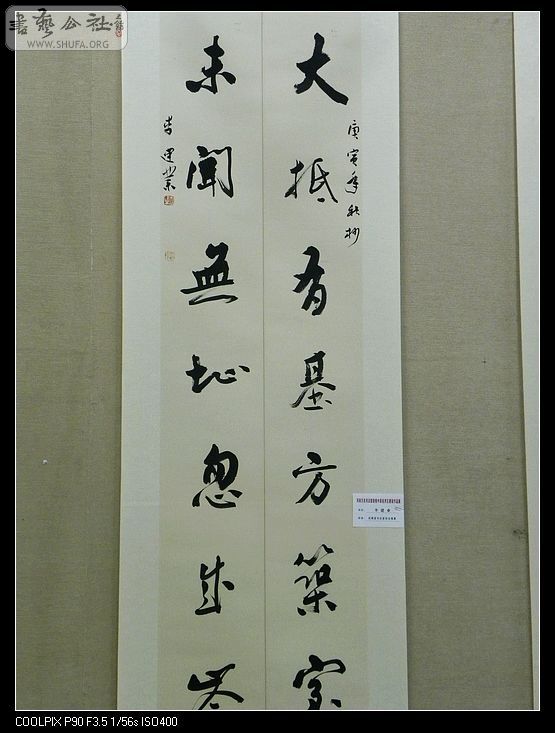 書藝公社
WWW.SHUFA.ORG
大抵有基方築室
庚寅年秋杪
未聞無址忽成岑
李建業
COOLPIX P90 F3.5 1/56s ISO400